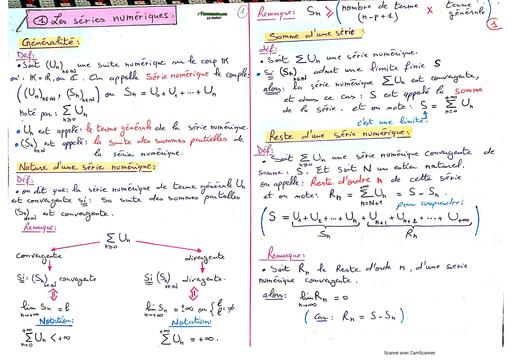 ① Les séries numériques.
①
Généralité:
Déf:
• Soit (Un)n∈ℕ une suite numérique sur le corp 𝕂
où: 𝕂 = ℝ, ou ℂ. On appelle Série numérique le couple:
((Un)n∈ℕ, (Sn)n∈ℕ) où Sn = U0 + U1 + ... + Un
noté par: ∑n≥0 Un
• Un est appelé: le terme général de la série numérique.
• (Sn)n∈ℕ est appelé: la suite des sommes partielles de
la série numérique.
Nature d'une série numérique:
Déf:
• on dit que: la série numérique de terme générale Un
est convergente si: Sa suite des sommes partielles
(Sn)n∈ℕ est convergente.
Remarque:
∑n≥0 Un
convergente
divergente
Si: (Sn)n∈ℕ convergente
Si (Sn)n∈ℕ divergente.
lim n→+∞ Sn = l
lim n→+∞ Sn = ±∞ ou
Notation:
Notation:
∑ Un < +∞
∑ Un = +∞.
Remarque: Sn ≥ (nombre de terme (n-p+1)) × (terme générale)
①
Somme d'une série:
déf:
• Soit ∑ Un une série numérique.
• Si (Sn)n∈ℕ admet une limite finie S
alors: la série numérique ∑ Un est convergente,
et dans ce cas: S est appelé la somme
de la série. et on note: S = ∑ Un
c'est une limite!
Reste d'une série numérique:
Déf:
Soit ∑ Un une série numérique convergente de
somme: S. Et Soit N un entier naturel.
on appelle: Reste d'ordre n de cette série
et on note: Rn = ∑ Un = S - Sn.
pour comprendre:
(S = U0 + U1 + ... + Un + Un+1 + Un+2 + ... + U+∞)
Sn
Rn
Remarque:
• Soit Rn le Reste d'orde n, d'une serie
numérique convergente.
alors: lim n→+∞ Rn = 0
(car: Rn = S - Sn)
Scanné avec CamScanner